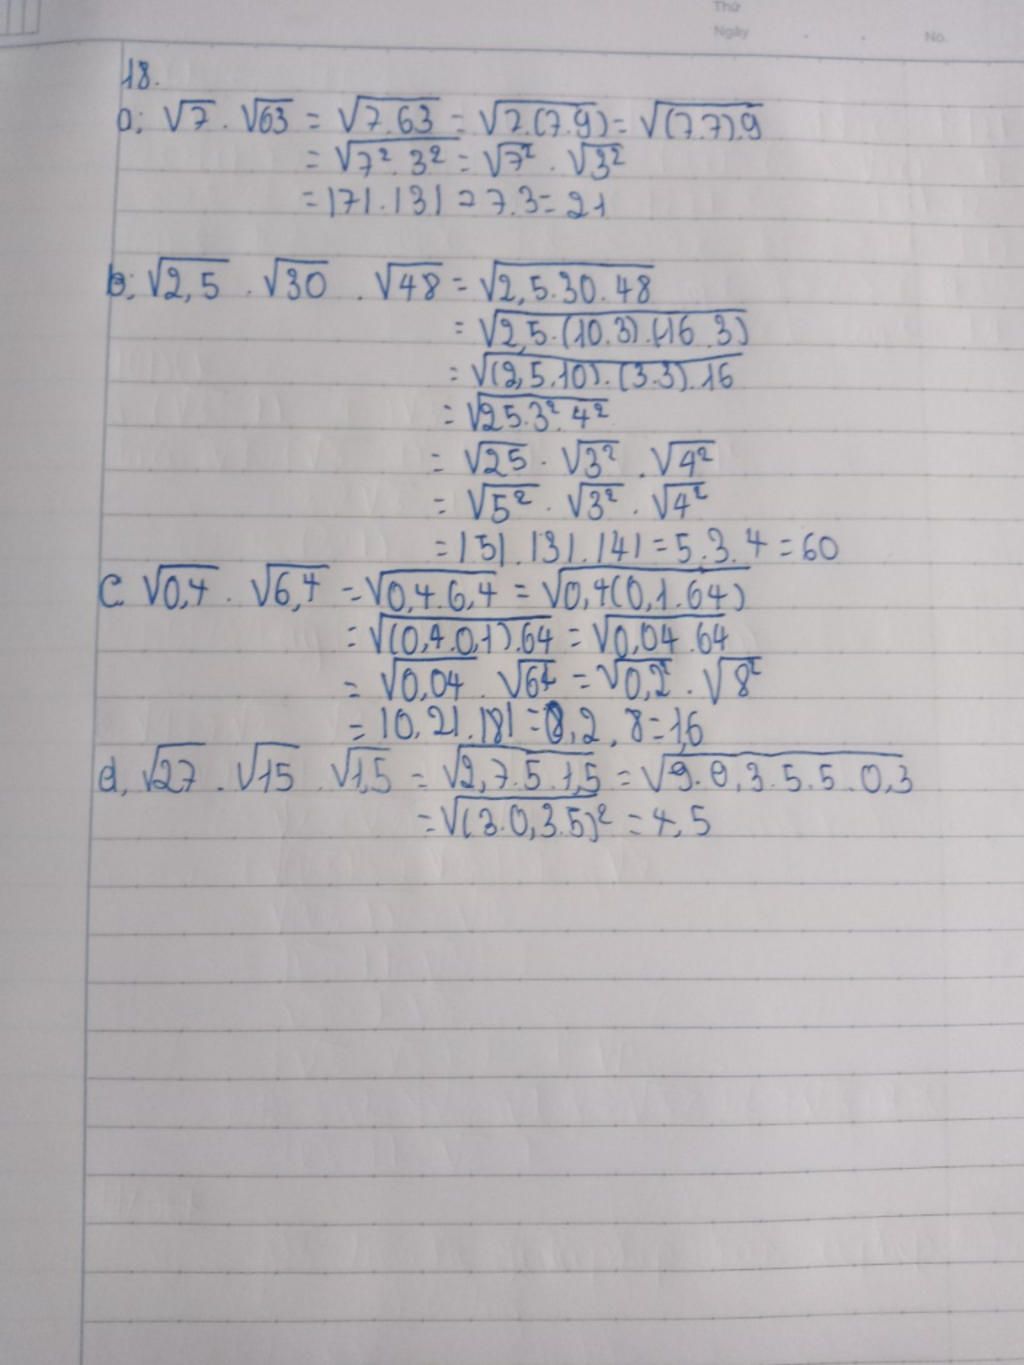 Thứ
Ngày . . No.
18.
a; √7 . √63 = √7.63 = √7.(7.9) = √(7.7).9
= √7².3² = √7² . √3²
= |7|.|3| = 7.3 = 21
b; √2,5 . √30 . √48 = √2,5.30.48
= √2,5.(10.3).(16.3)
= √(2,5.10).(3.3).16
= √25.3².4²
= √25 . √3² . √4²
= √5² . √3² . √4²
= |5|.|3|.|4| = 5.3.4 = 60
c. √0,4 . √6,4 = √0,4.6,4 = √0,4(0,1.64)
= √(0,4.0,1).64 = √0,04.64
= √0,04 . √64 = √0,2² . √8²
= |0,2|.|8| = 0,2.8 = 1,6
d, √27 . √15 . √1,5 = √2,7.5.1,5 = √9.0,3.5.5.0,3
= √(3.0,3.5)² = 4,5